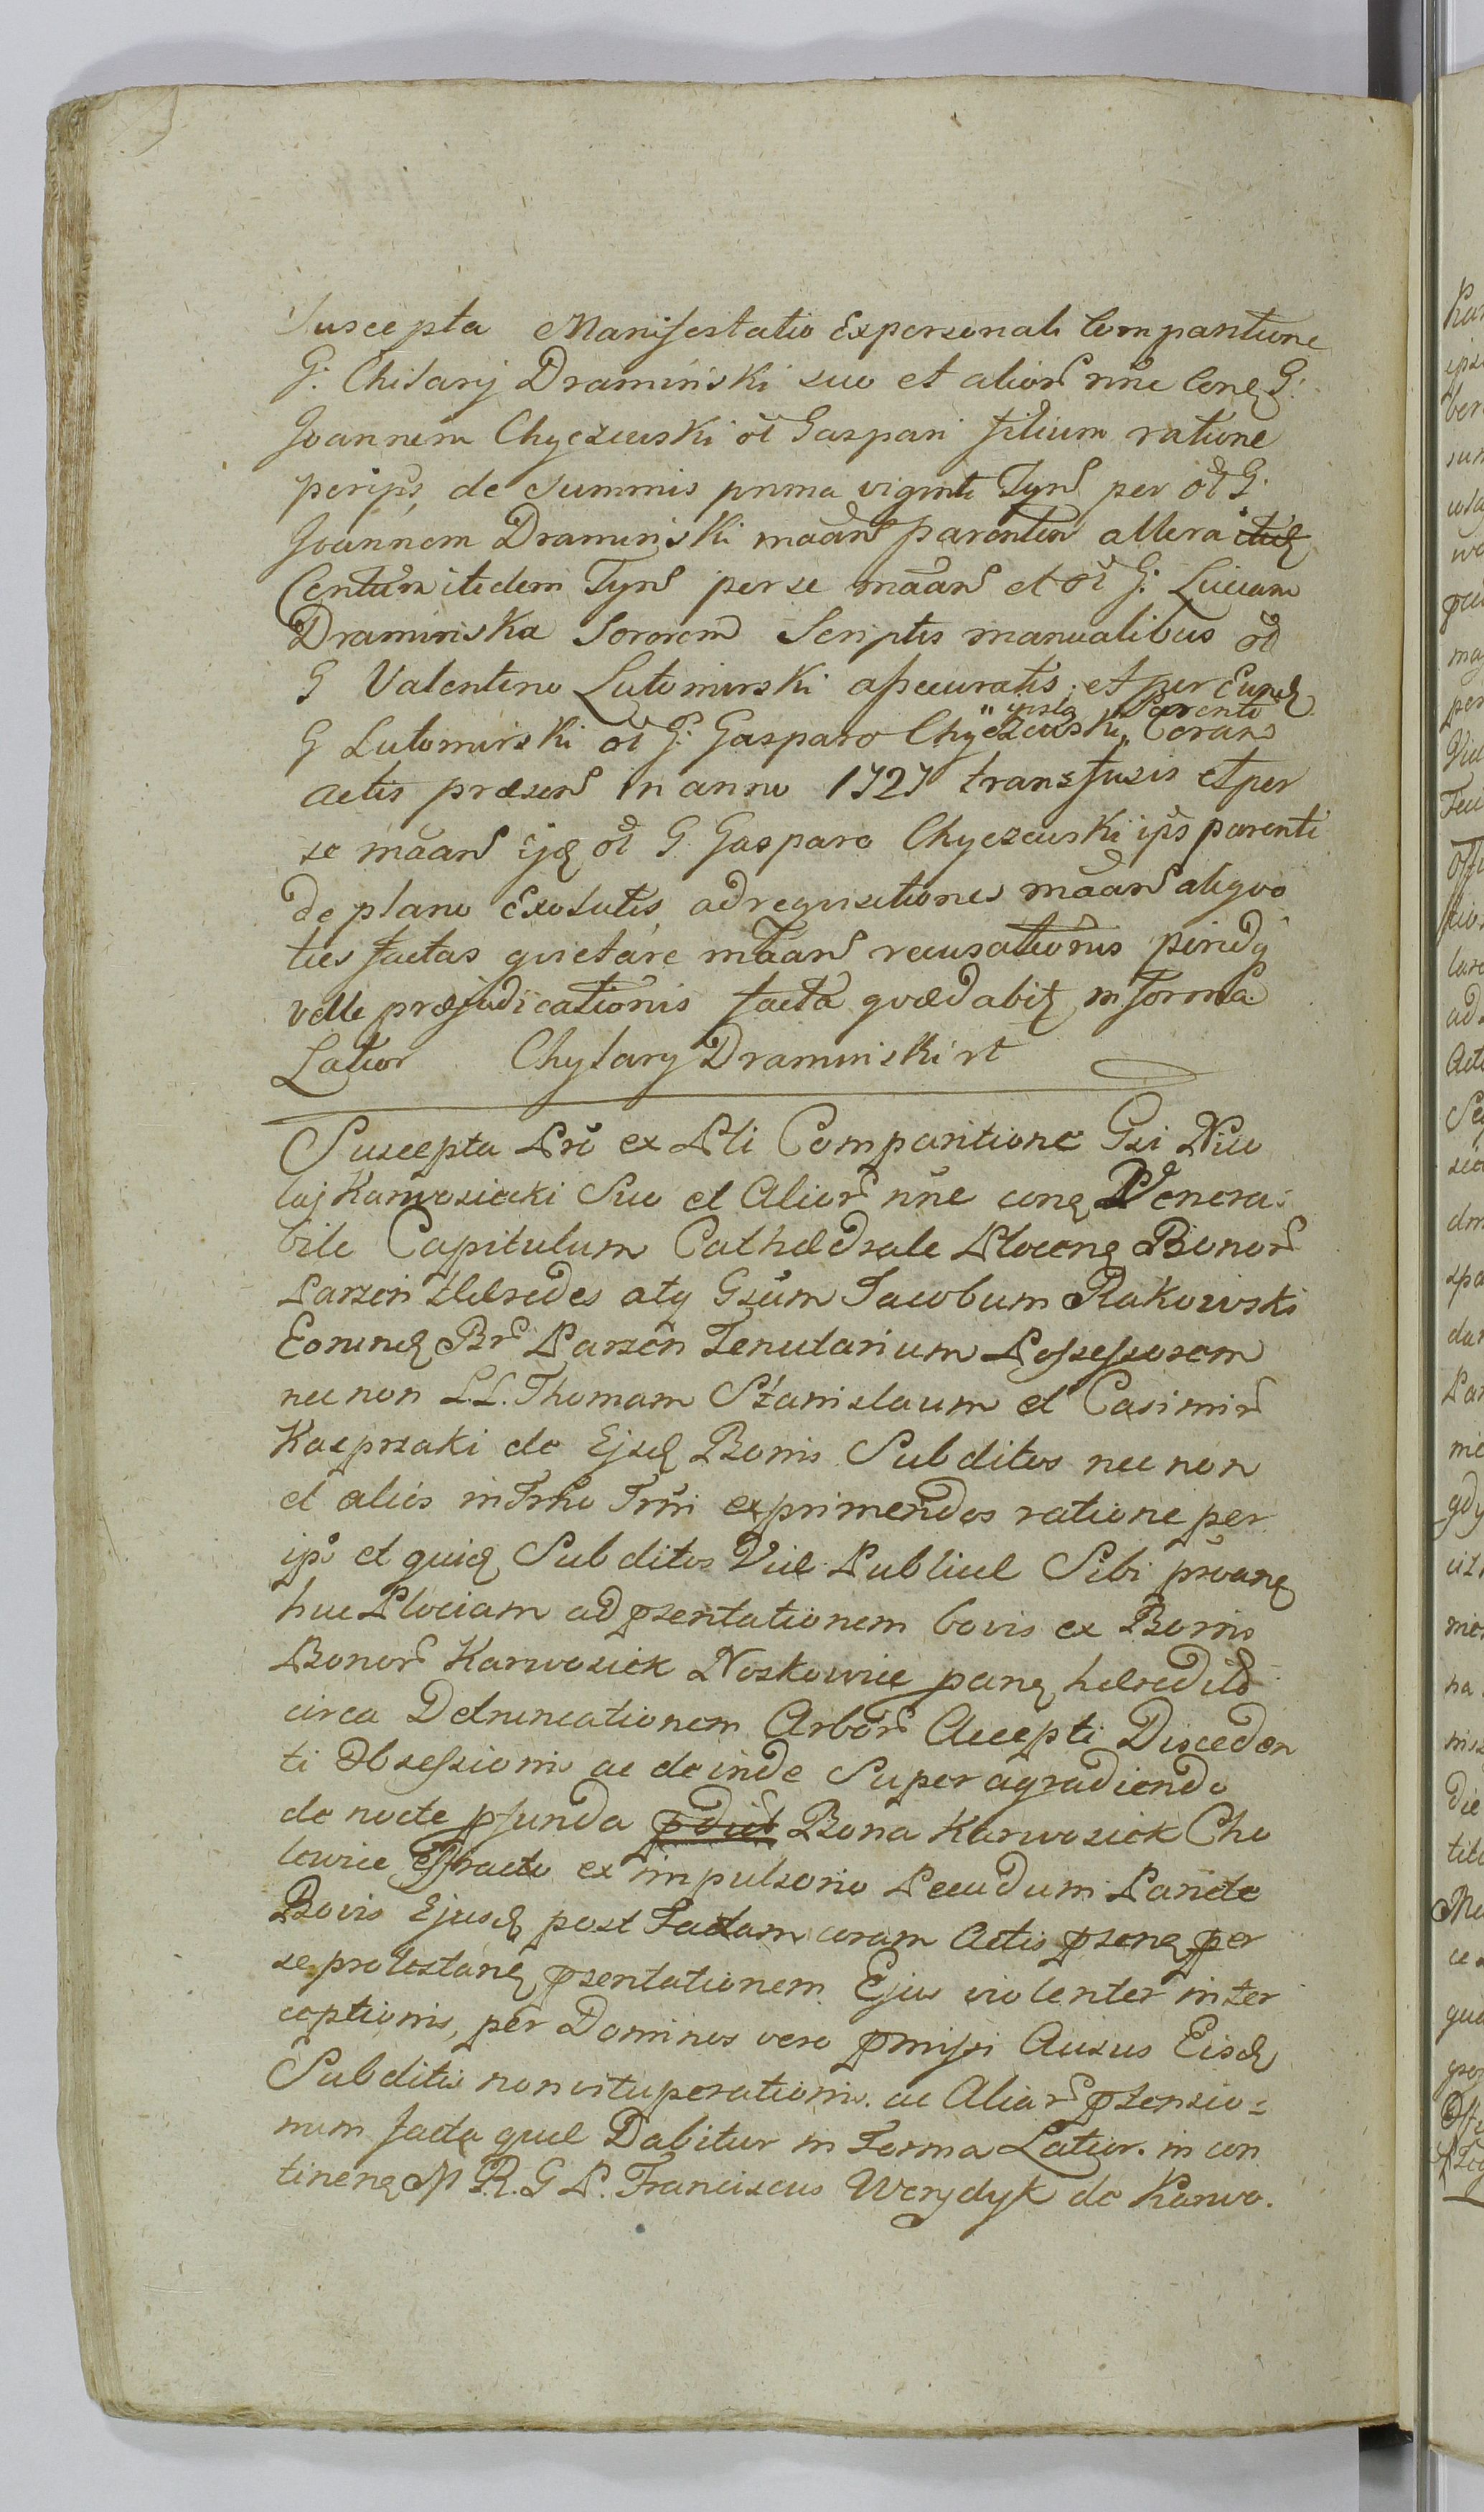 Suscepta Manifestatio Expersonali Comparitione
G: Chilarij Dramiński suo et alior nñe Conq G:
Joannem Chyczewski ol Gaspari filium ratione
per ips, de Summis prima viginti Tyn per ol G:
Joannem Dramiński maan parentem altera
Centum itidem Tyn per se maan et ol G: Luciam
Dramińska Sororem Scriptis manualibus ol
G Valentino Lutomirski assecuratis et per Eund
G Lutomirski ol G: Gasparo Chyczewski " ipsia Parente " Coram
actis præsen in anno 1727 transfusis et per
se maan ijd ol G Gasparo Chyczewski ips parenti
de plano Exolutis, ad requisitiones maan aliquo
ties factas quietare maan recusationis perindq
velle præjudicationis facta quæ dabit in forma
Latior Chylary Dramiński rt
Suscepta Pro ex Pli Comparitione Gsi Nico
laj Karwosiecki Suo et Alior nñe conq Venera:
bile Capitulum Cathedrale Plocenq Bonor
Parzen Hæredes atq Gsum Jacobum Rakowski
Eorund Br Parzen Tenutarium Possessorem
nec non LL. Thomam Stanislaum et Casimir
Kasprzaki de Ejsd Bonis Subditos nec non
et alios in Trno Trmi exprimendos ratione per
ips et quid Subditos Viæ Publicæ Sibi proanq
huc Plociam ad psentationem bovis ex Bonis
Bonor Karwosiek Noskowice panq hæredit
circa Detruncationem Arbor Accepti Disceden
ti Obsessionis ac deinde Superagradiendo
de nocte pfunda pdict Bona Karwosiek Cho
lowice Effracto ex impulsorio Pecudum Pariete
Bovis Ejusd post Factam coram Actis psenq per
se protestanq psentationem Ejus violenter inter
ceptionis, per Dominos vero pmissi Ausus Eisd
Subditis non vituperationis. ac Aliar ptensio=
num facta quæ Dabitur in Forma Latior. in con
tinenq M R. G P. Franciscus Werydyk de Karwo.